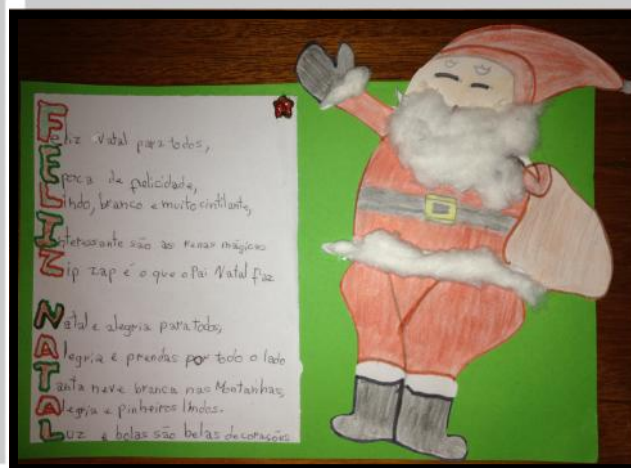 Feliz Natal para todos,
Epoca de felicidade,
Lindo, branco e muito cintilante,
Interessante são as renas mágicas
Zip zap é o que o Pai Natal faz
Natal e alegria para todos,
Alegria e prendas por todo o lado
Tanta neve branca nas Montanhas,
Alegria e Pinheiros lindos.
Luz e bolas são belas decorações